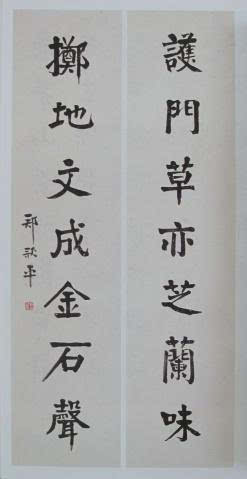 護門草亦芝蘭味
擲地文成金石聲
鄭歌平